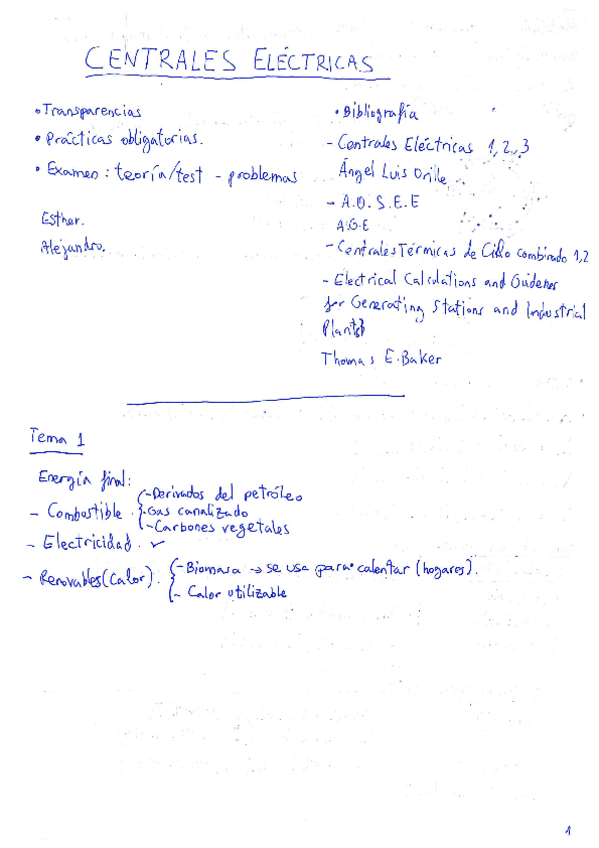 CENTRALES ELÉCTRICAS
• Transparencias
• Prácticas obligatorias.
• Examen: teoría/test - problemas
Esther.
Alejandro.
• Bibliografía
- Centrales Eléctricas 1, 2, 3
Ángel Luis Orille.
- A.O.S.E.E
A.G.E
- Centrales Térmicas de Ciclo combinado 1,2
- Electrical Calculations and Guidelines
for Generating Stations and Industrial
Plants
Thomas E. Baker
Tema 1
Energía final:
- Combustible. { -Derivados del petróleo
-Gas canalizado
-Carbones vegetales
- Electricidad. ✓
- Renovables (Calor). { - Biomasa → se usa para calentar (hogares).
- Calor utilizable
1